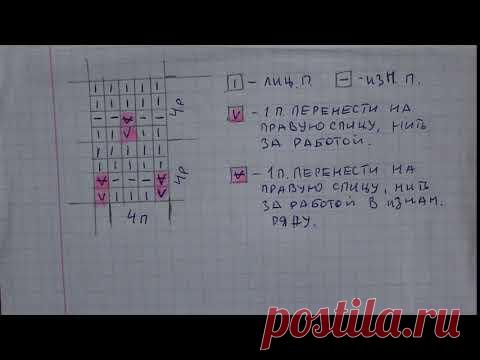 I - ЛИЦ. П. — - ИЗН. П.
V - 1 П. ПЕРЕНЕСТИ НА
ПРАВУЮ СПИЦУ, НИТЬ
ЗА РАБОТОЙ.
- 1 П. ПЕРЕНЕСТИ НА
ПРАВУЮ СПИЦУ, НИТЬ
ЗА РАБОТОЙ В ИЗНАН.
РЯДУ.
4Р
4Р
4П
postila.ru